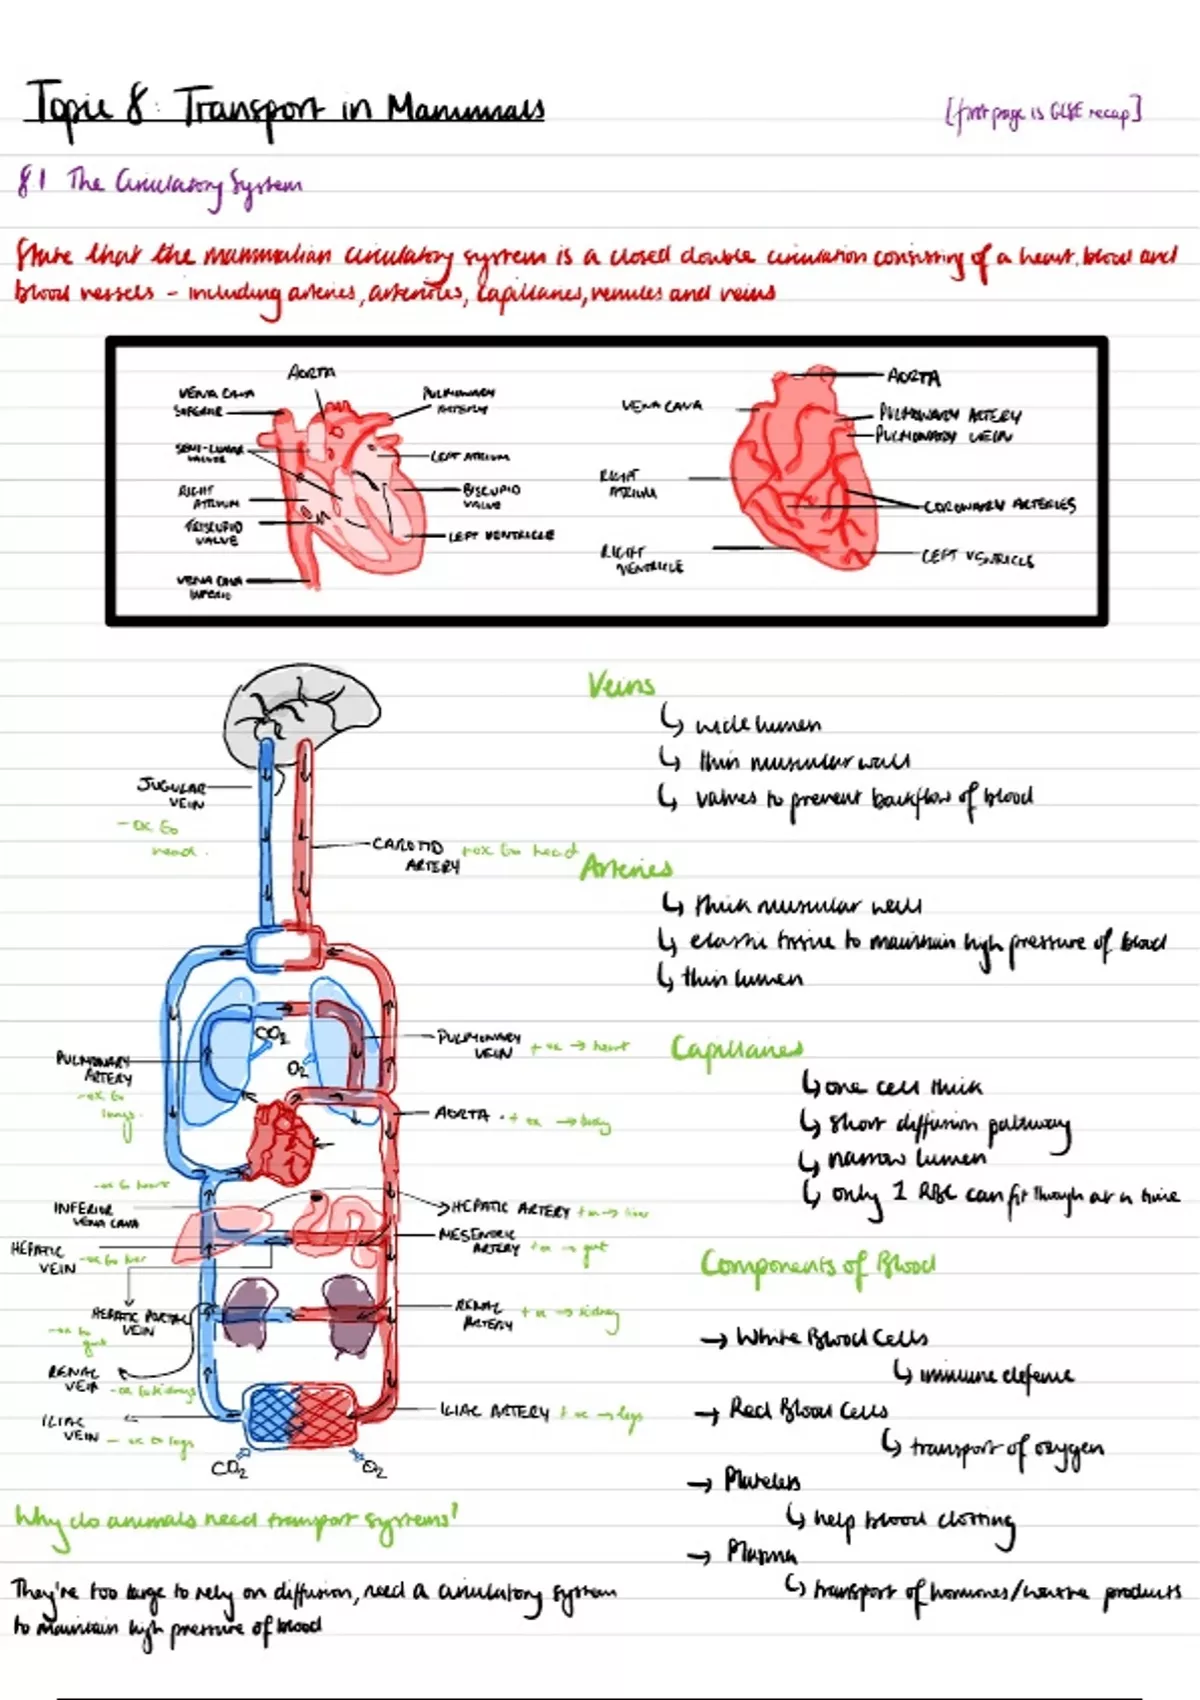 Topic 8: Transport in Mammals
[first page is GCSE recap]
8.1 The Circulatory System
State that the mammalian circulatory system is a closed double circulation consisting of a heart, blood and
blood vessels – including arteries, arterioles, capillaries, venules and veins
AORTA
VENA CAVA
SUPERIOR
PULMONARY
ARTERY
SEMI-LUNAR
VALVES
LEFT ATRIUM
RIGHT
ATRIUM
BISCUPID
VALVE
TRISCUPID
VALVE
LEFT VENTRICLE
VENA CAVA
INFERIO
AORTA
VENA CAVA
PULMONARY ARTERY
PULMONARY VEIN
RIGHT
ATRIUM
CORONARY ARTERIES
RIGHT
VENTRICLE
LEFT VENTRICLE
JUGULAR
VEIN
- ox to
head.
CAROTID
ARTERY
+ox to head
PULMONARY
ARTERY
-ox to
lungs.
CO2
O2
PULMONARY
VEIN
+ ox → heart
AORTA
+ ox → body
-ox to heart
INFERIOR
VENA CAVA
HEPATIC ARTERY
+ox → liver
HEPATIC
VEIN
-ox to liver
MESENTERIC
ARTERY
+ox → gut
HEPATIC PORTAL
VEIN
-ox to
gut
RENAL
ARTERY
+ ox → kidney
RENAL
VEIN
-ox to kidneys
ILIAC
VEIN
- ox to legs
ILIAC ARTERY
+ ox → legs
CO2
O2
Why do animals need transport systems?
They're too large to rely on diffusion, need a circulatory system
to maintain high pressure of blood
Veins
↳ wide lumen
↳ thin muscular wall
↳ valves to prevent backflow of blood
Arteries
↳ thick muscular wall
↳ elastic tissue to maintain high pressure of blood
↳ thin lumen
Capillaries
↳ one cell thick
↳ short diffusion pathway
↳ narrow lumen
↳ only 1 RBC can fit through at a time
Components of Blood
→ White Blood Cells
↳ immune defense
→ Red Blood Cells
↳ transport of oxygen
→ Platelets
↳ help blood clotting
→ Plasma
↳ transport of hormones/waste products